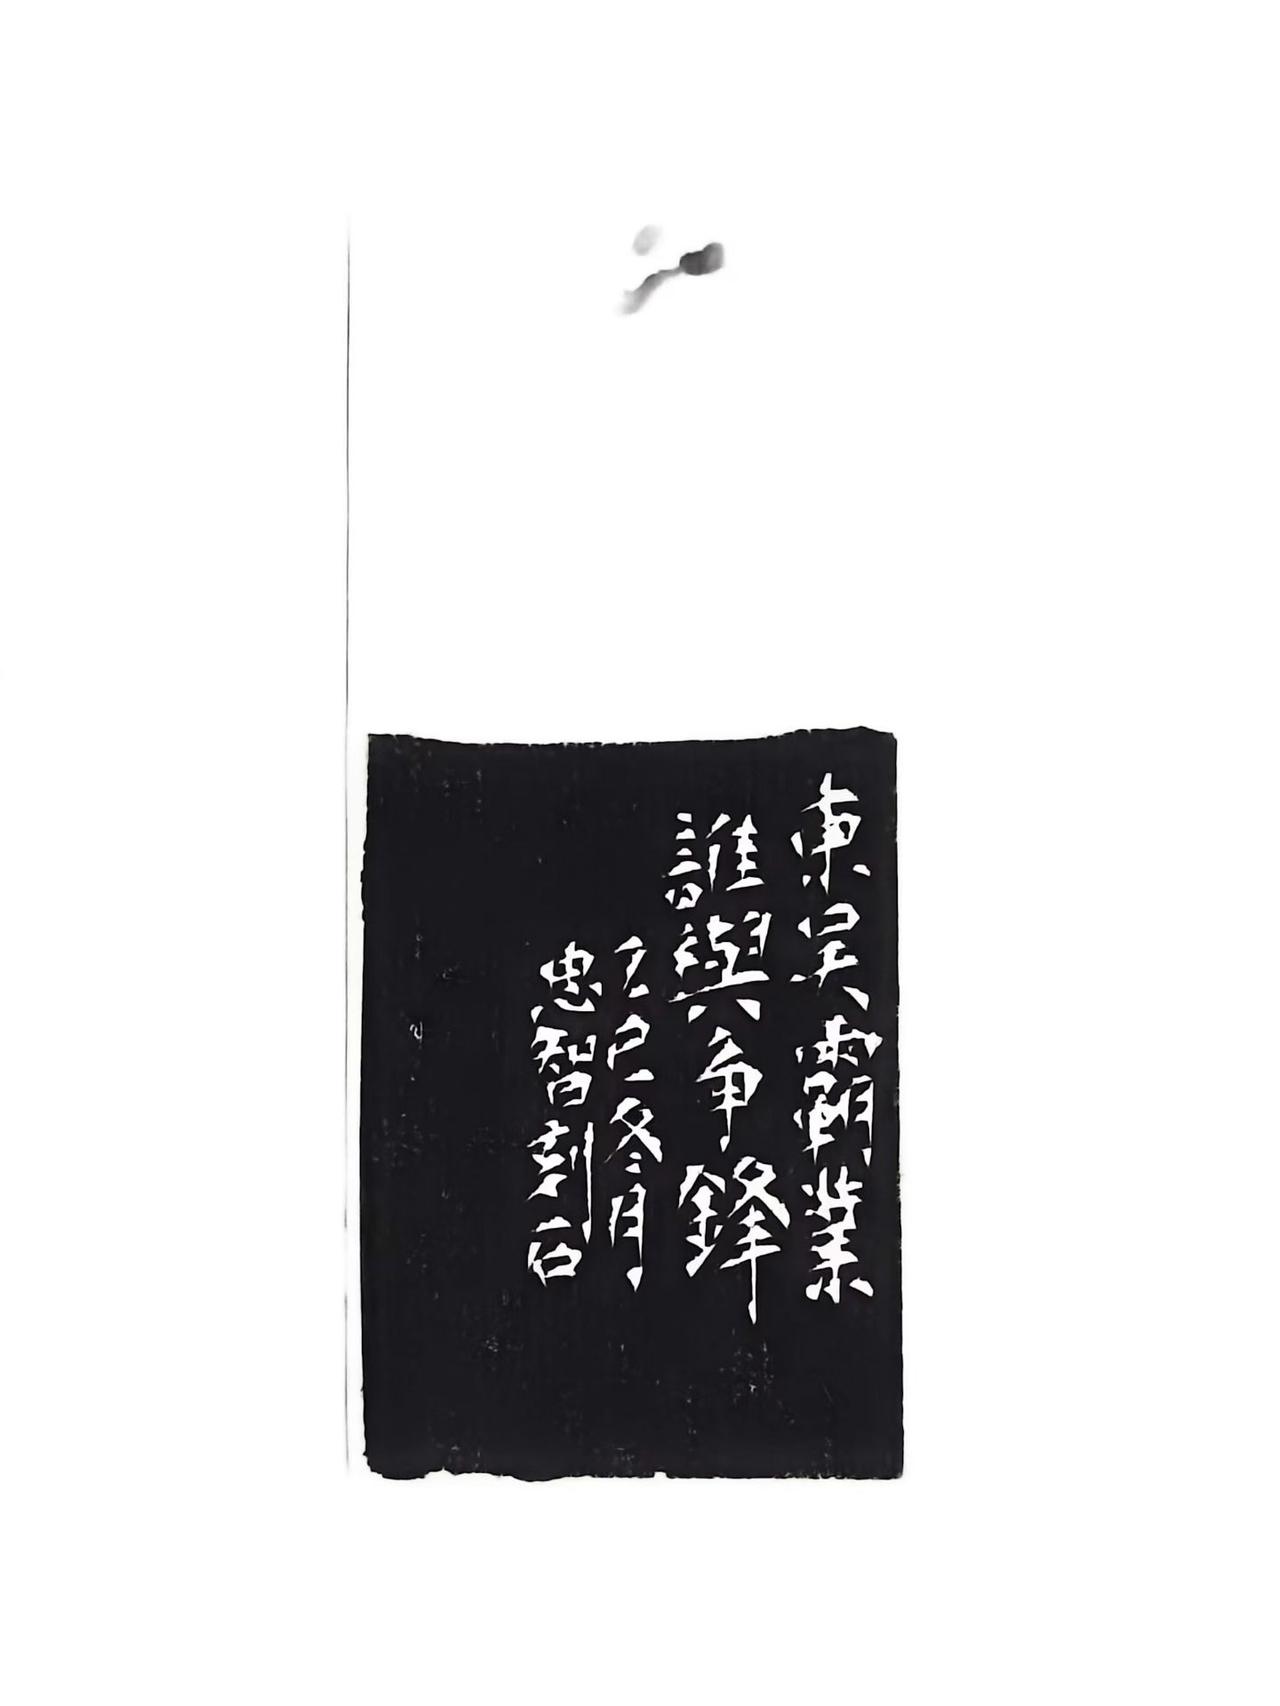 東吴霸業
誰與争鋒
乙巳冬月
忠智刻石